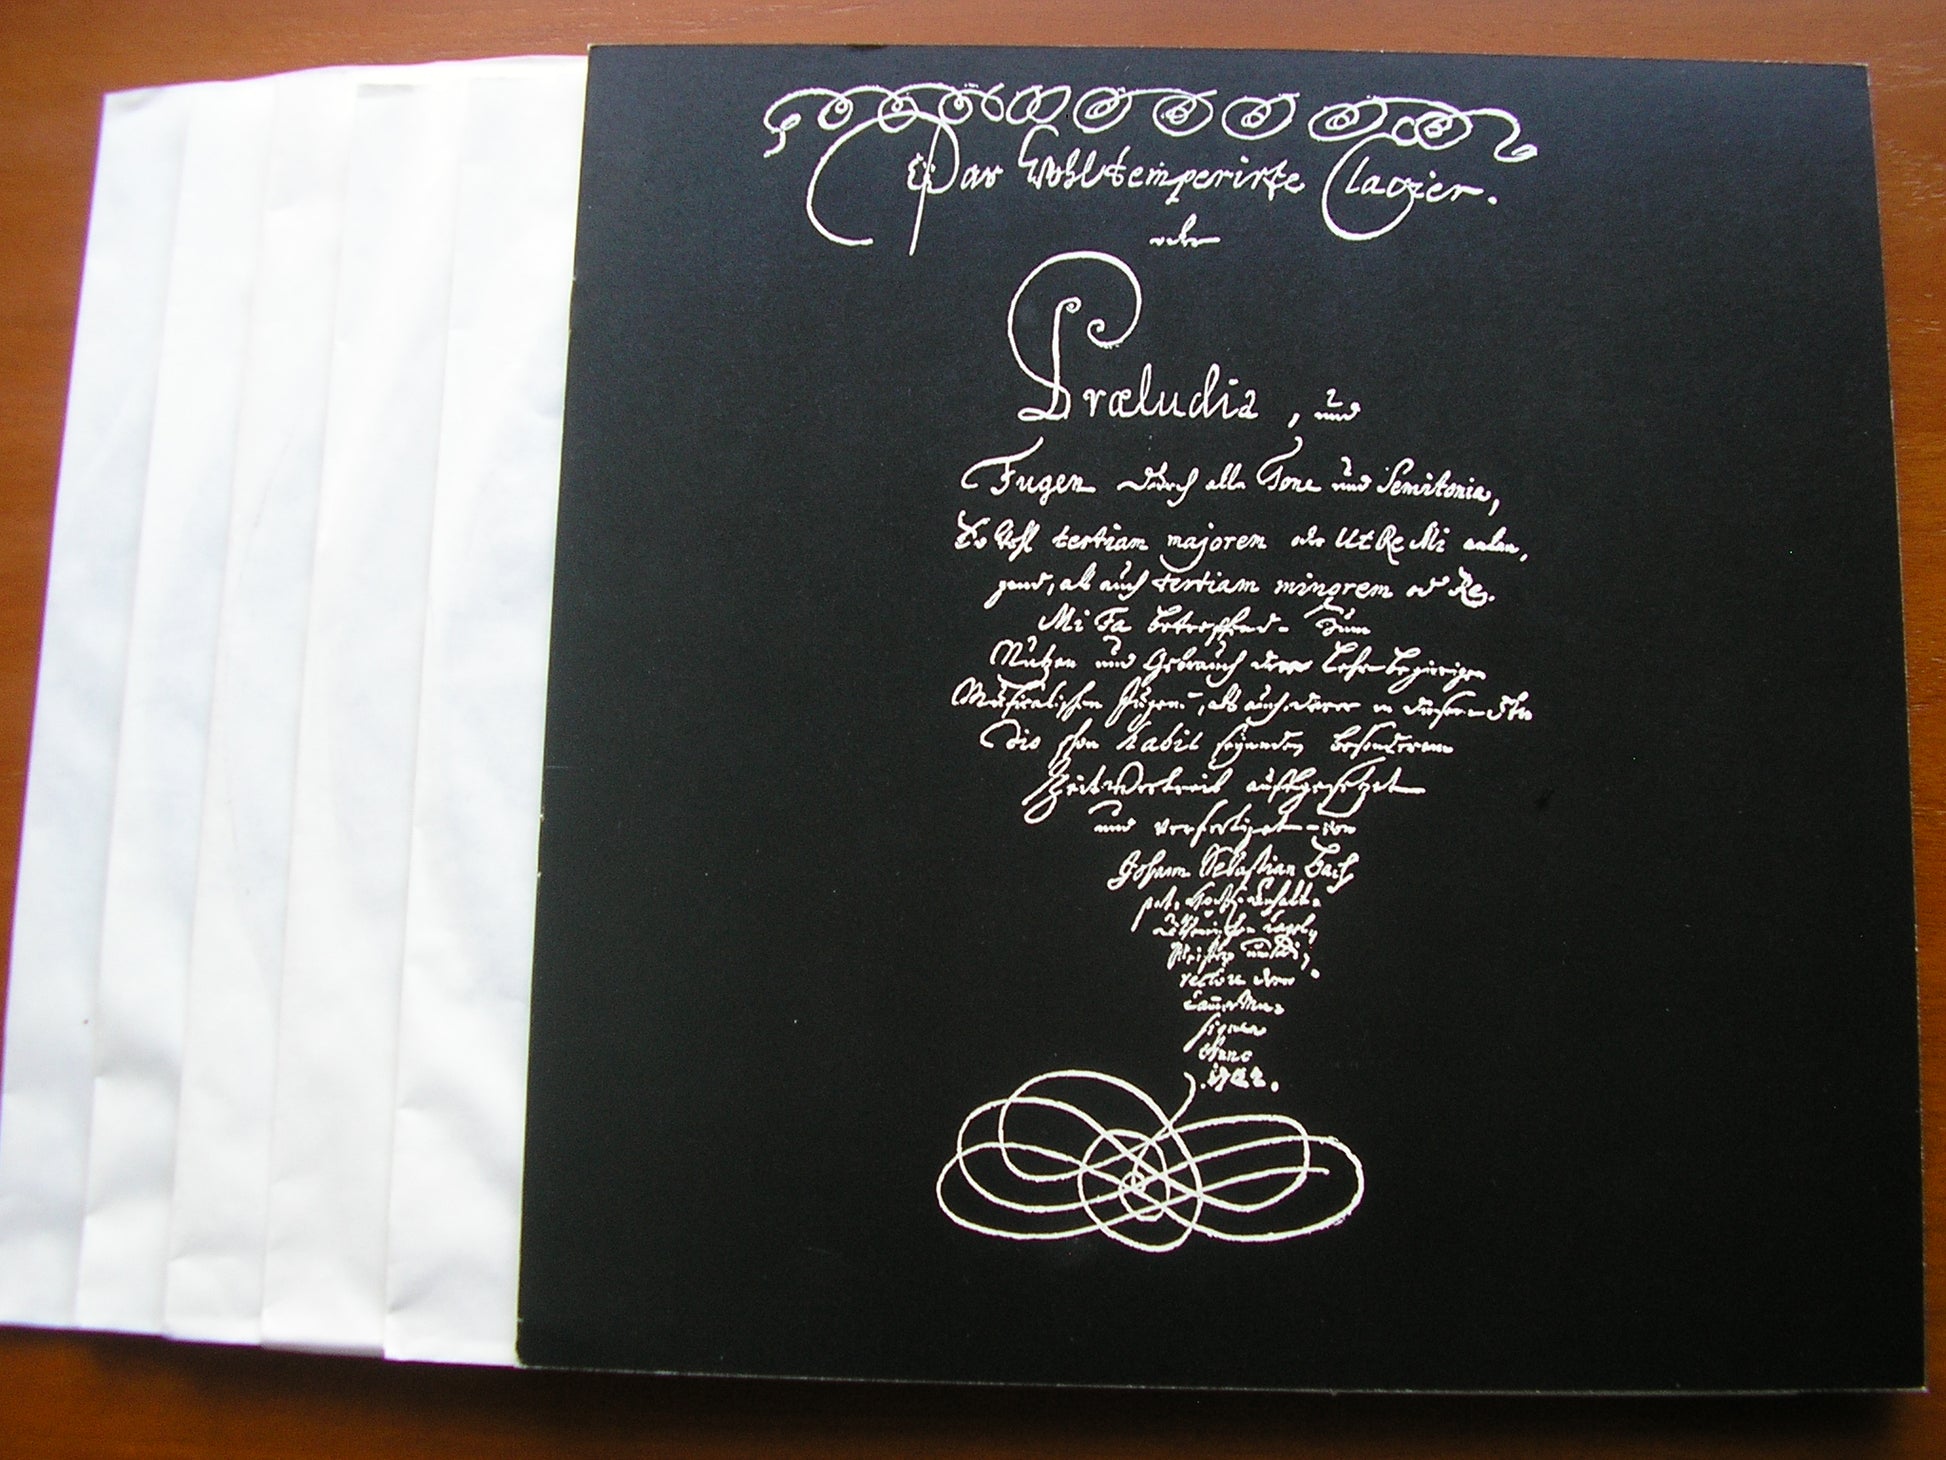 Das Wohltemperirte Clavier.
oder
Præludia, und
Fugen durch alle Tone und Semitonia,
So wohl tertiam majorem oder Ut Re Mi anlan,
gend, als auch tertiam minorem od Re
Mi Fa betreffend. Zum
Nutzen und Gebrauch der Lehr-begierigen
Musicalischen Jugend, als auch derer in diesem stu
dio schon habil seyenden besonderem
ZeitVertreib auffgesetzet
und verfertiget von
Johann Sebastian Bach
p.t. HochF. Anhalt.
Cöthenischen Capel,
Meister und Di,
rectore derer
Cammer Mu,
siquen
Anno
1722.